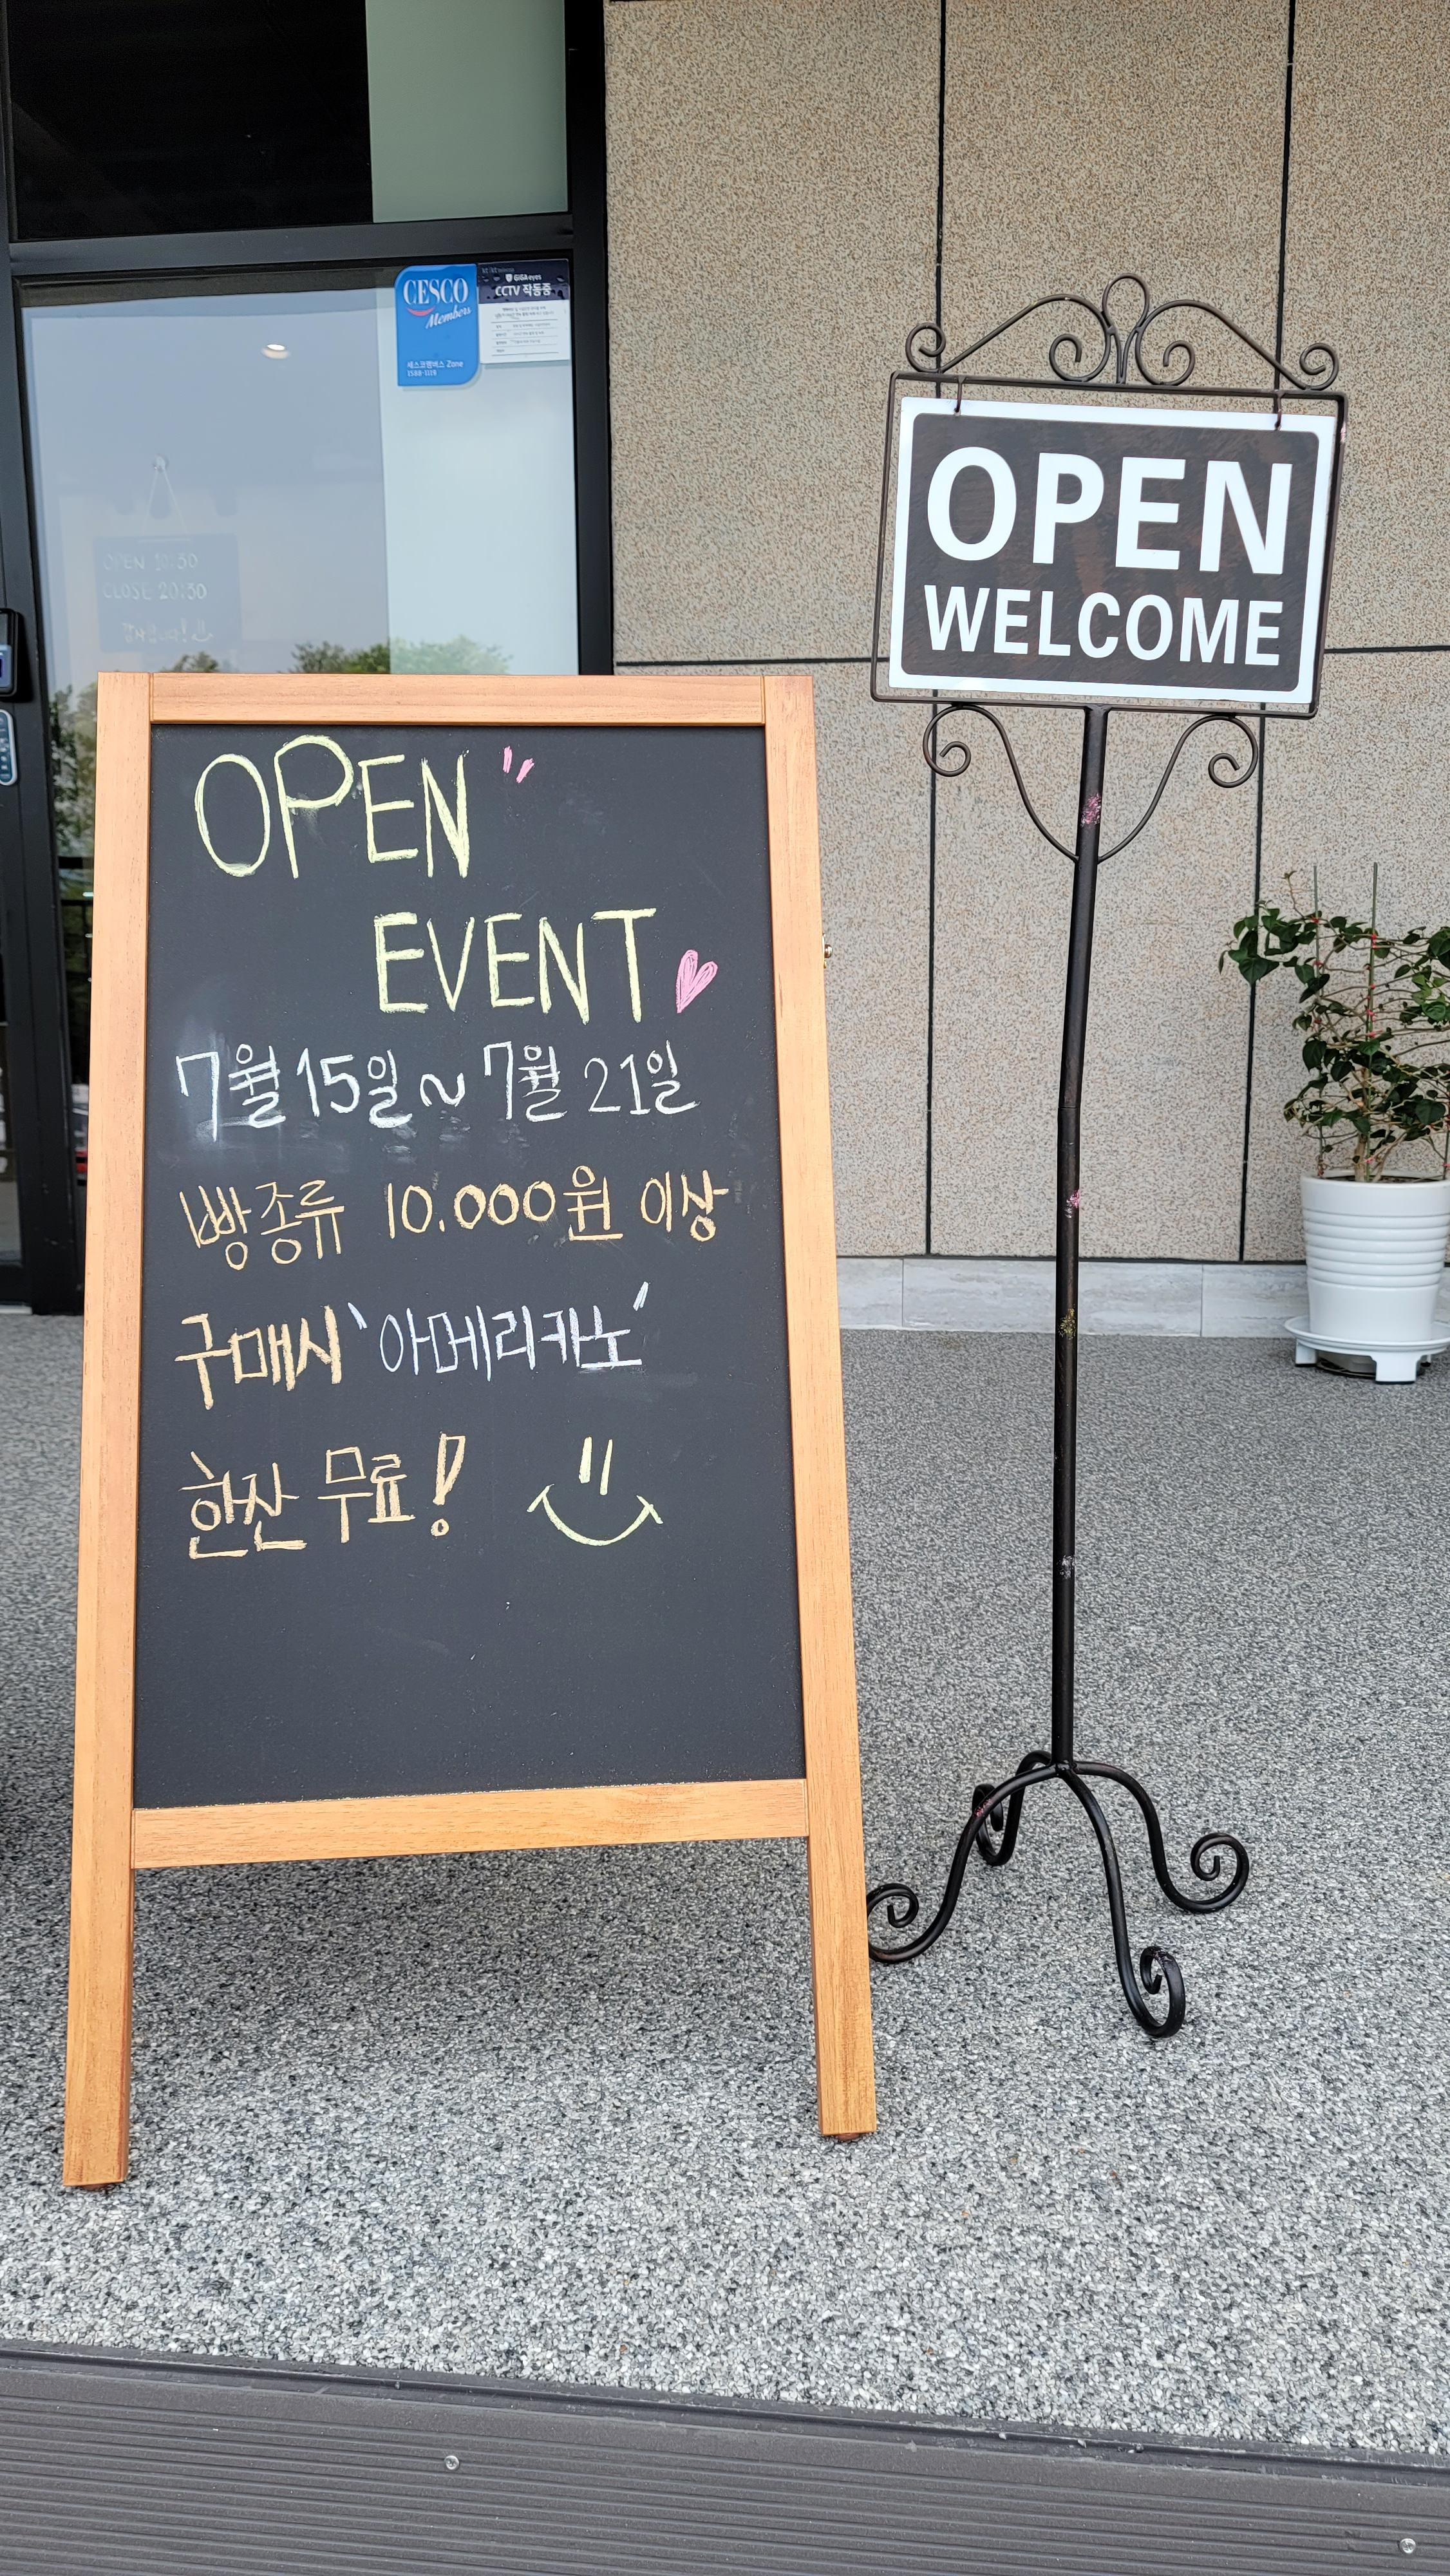 CESCO
Members
세스코멤버스 Zone
1588-1119
GiGAeyes
CCTV 작동중
OPEN 10:30
CLOSE 20:30
OPEN
WELCOME
OPEN"
EVENT
7월 15일 ~ 7월 21일
빵종류 10.000원 이상
구매시 '아메리카노'
한잔 무료!